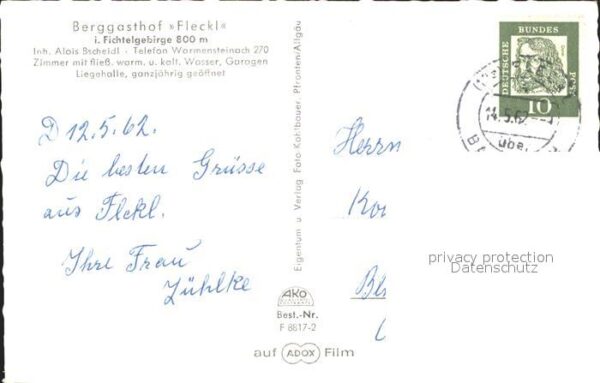 Berggasthof »Fleckl«
i. Fichtelgebirge 800 m
Inh. Alois Bscheidl · Telefon Warmensteinach 270
Zimmer mit fließ. warm. u. kalt. Wasser, Garagen
Liegehalle, ganzjährig geöffnet
D 12.5.62.
Die besten Grüsse
aus Fleckl.
Ihre Frau
Zühlke
Eigentum u. Verlag Foto Kohlbauer, Pfronten/Allgäu
AKO
Best.-Nr.
F 8817-2
auf ADOX Film
DEUTSCHE
BUNDES
POST
10
14.5.62
über
Herrn
privacy protection
Datenschutz